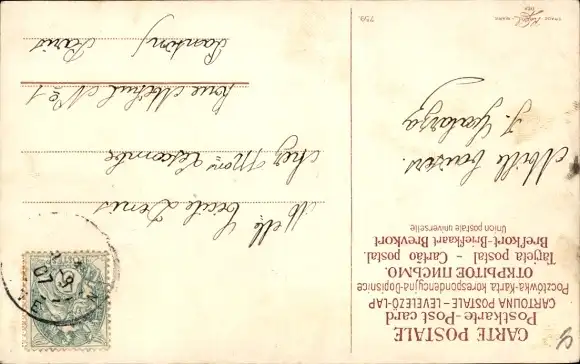 CARTE POSTALE
Postkarte-Post card
CARTOLINA POSTALE – LEVELEZŐ-LAP
Pocztówka-Karta korespondencyjna-Dopisnice
ОТКРЫТОЕ ПИСЬМО.
Tarjeta postal – Cartão postal.
Brefkort-Briefkaart Brevkort
Union postale universelle
Mille baisers.
J.
TRADE MARK
759.
Melle Cécile Denis
chez Mme Lecombe
rue N° 1
Paris
07